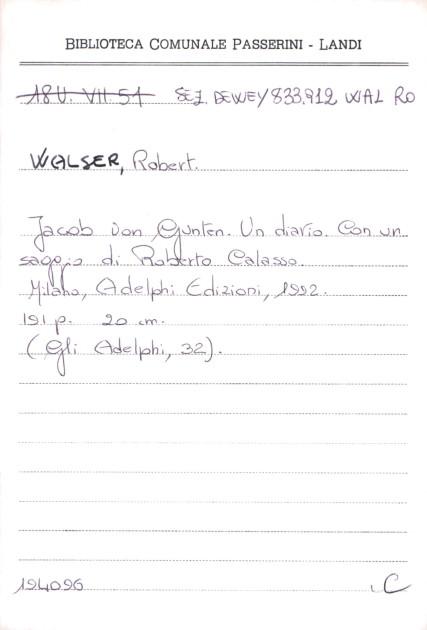 BIBLIOTECA COMUNALE PASSERINI - LANDI
18U. VII. 51 SEZ. DEWEY 833.912 WAL RO
WALSER, Robert.
Jacob von Gunten. Un diario. Con un
saggio di Roberto Calasso.
Milano, Adelphi Edizioni, 1992.
191 p. 20 cm.
(Gli Adelphi, 32).
194096 C